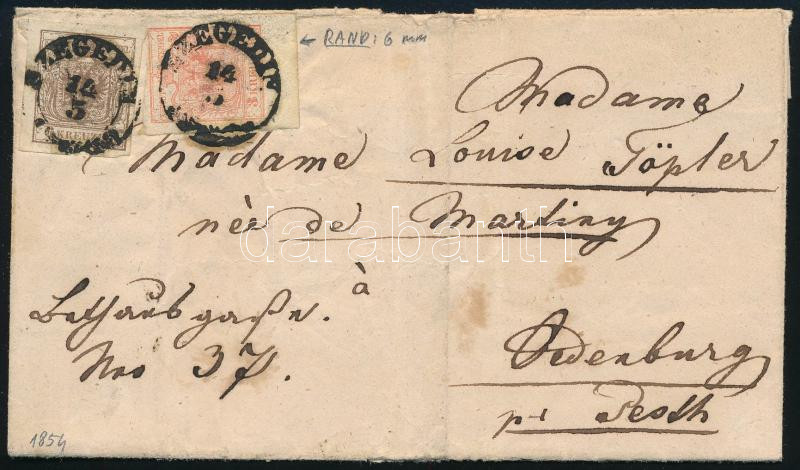 SZEGEDIN
14
5
KREUZER
SZEGEDIN
14
5
← RAND: 6 mm
Madame
Madame Louise Töpler
née de Martiny
à
Bethausgaße.
Nro 37.
Oedenburg
pr Pesth
1854
darabanth